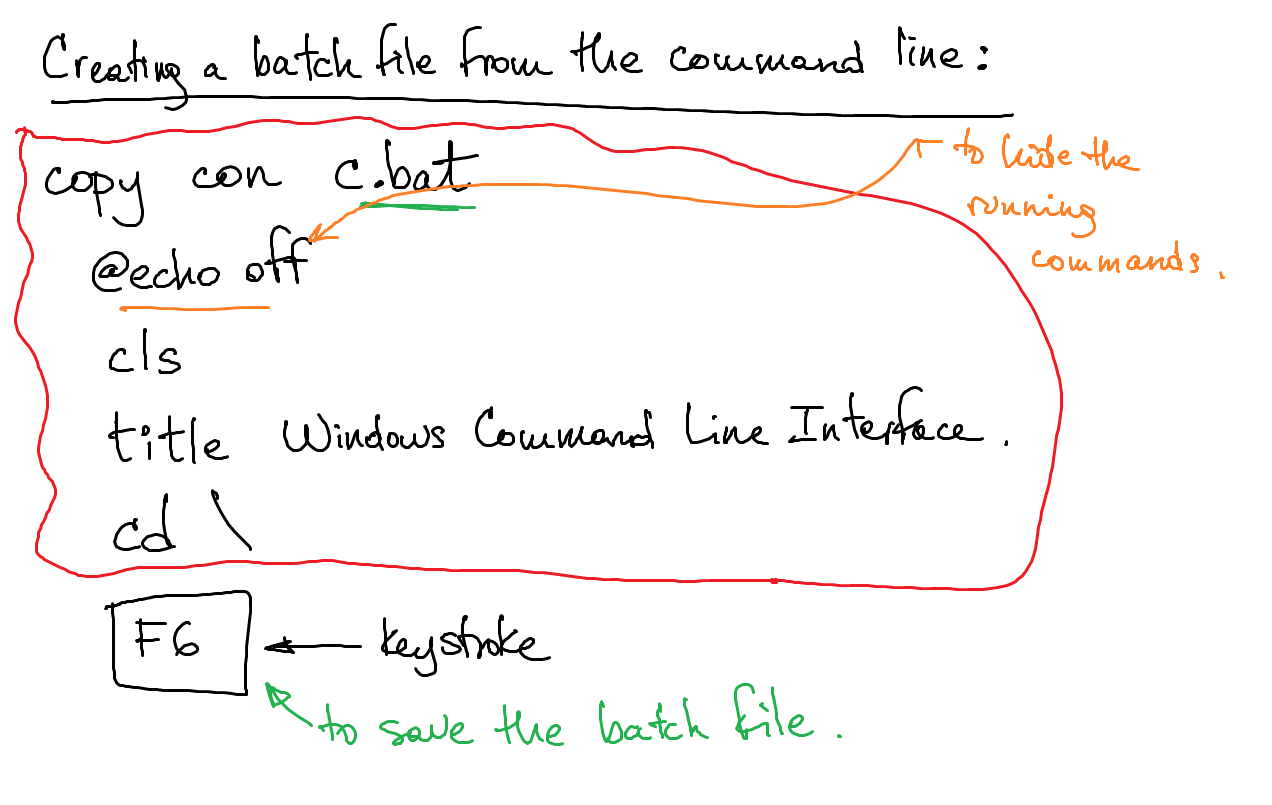 Creating a batch file from the command line:
copy con c.bat
to hide the
running
commands.
@echo off
cls
title Windows Command Line Interface.
cd \
F6 keystroke
to save the batch file.